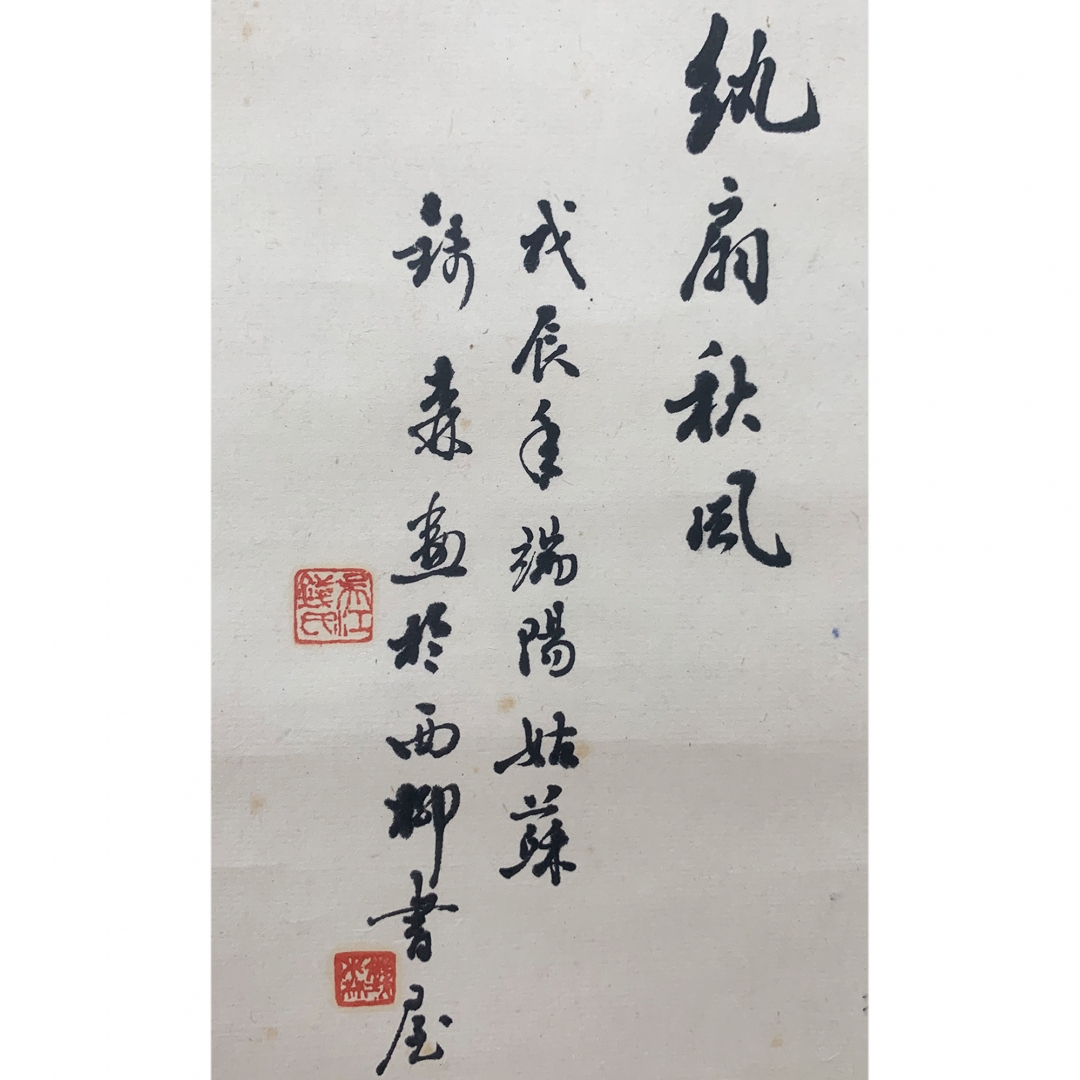 紈扇秋風
戊辰年端陽姑蘇
森畫於西柳書屋
吳江
錢氏